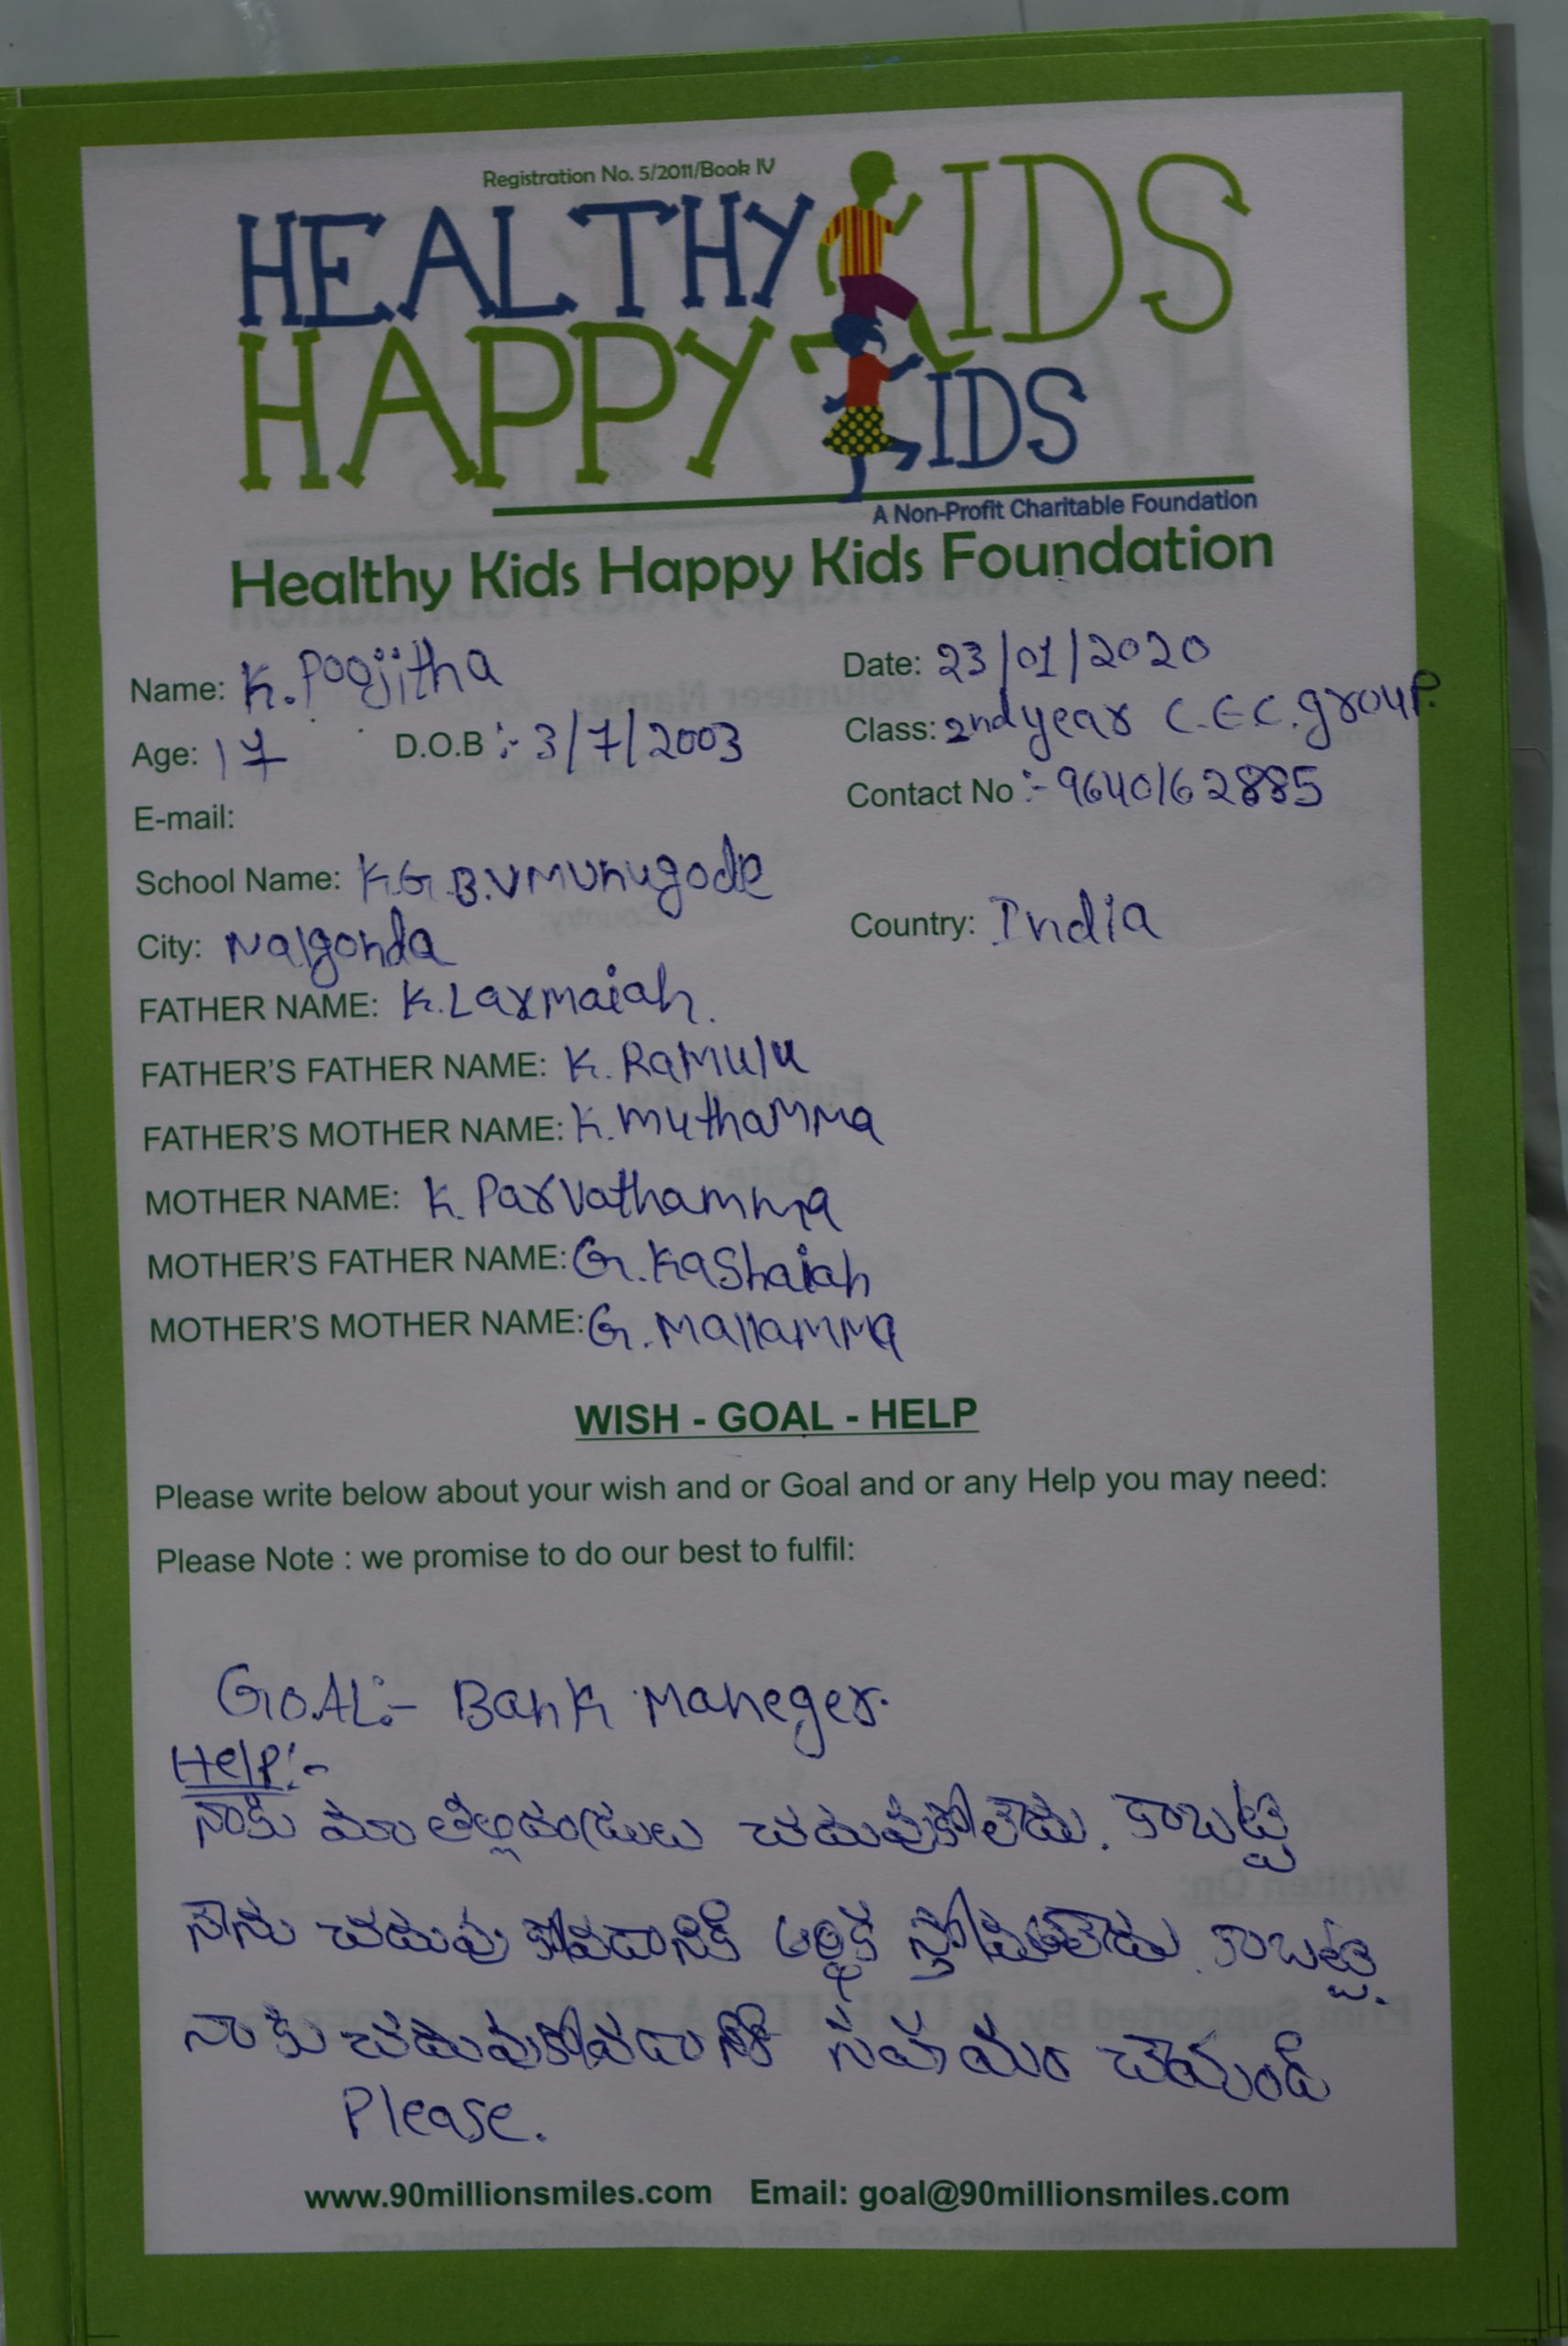 Registration No. 5/2011/Book IV
HEALTHY KIDS
HAPPY KIDS
A Non-Profit Charitable Foundation
Healthy Kids Happy Kids Foundation
Name: K. Poojitha
Date: 23/01/2020
Age: 17 D.O.B :- 3/7/2003
Class: 2nd year C.E.C. group.
E-mail:
Contact No :- 9640162885
School Name: K.G.B.V Munugode
City: Nalgonda
Country: India
FATHER NAME: K. Laxmaiah.
FATHER'S FATHER NAME: K. Ramulu
FATHER'S MOTHER NAME: K. Muthamma
MOTHER NAME: K. Parvathamma
MOTHER'S FATHER NAME: G. Kashaiah
MOTHER'S MOTHER NAME: G. Mallamma
WISH - GOAL - HELP
Please write below about your wish and or Goal and or any Help you may need:
Please Note : we promise to do our best to fulfil:
GOAL:- Bank Maneger.
Help:-
నాకు మా తల్లిదండ్రులు చదువుకోలేదు. కాబట్టి
నేను చదువు కోవడానికి ఆర్థిక స్తోమతలేదు. కాబట్టి.
నాకు చదువుకోవడానికి సహయం చేయండి
Please.
www.90millionsmiles.com Email: goal@90millionsmiles.com